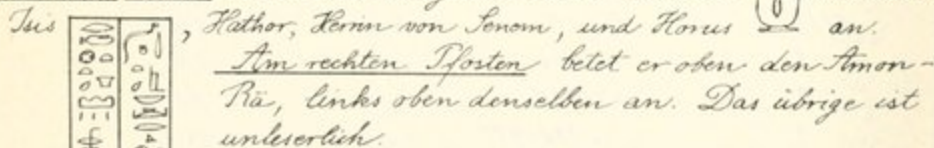 Isis , Hathor, Herrin von Senem, und Horus an.
Am rechten Pfosten betet er oben den Amon-
Rä, links oben denselben an. Das übrige ist
unleserlich.